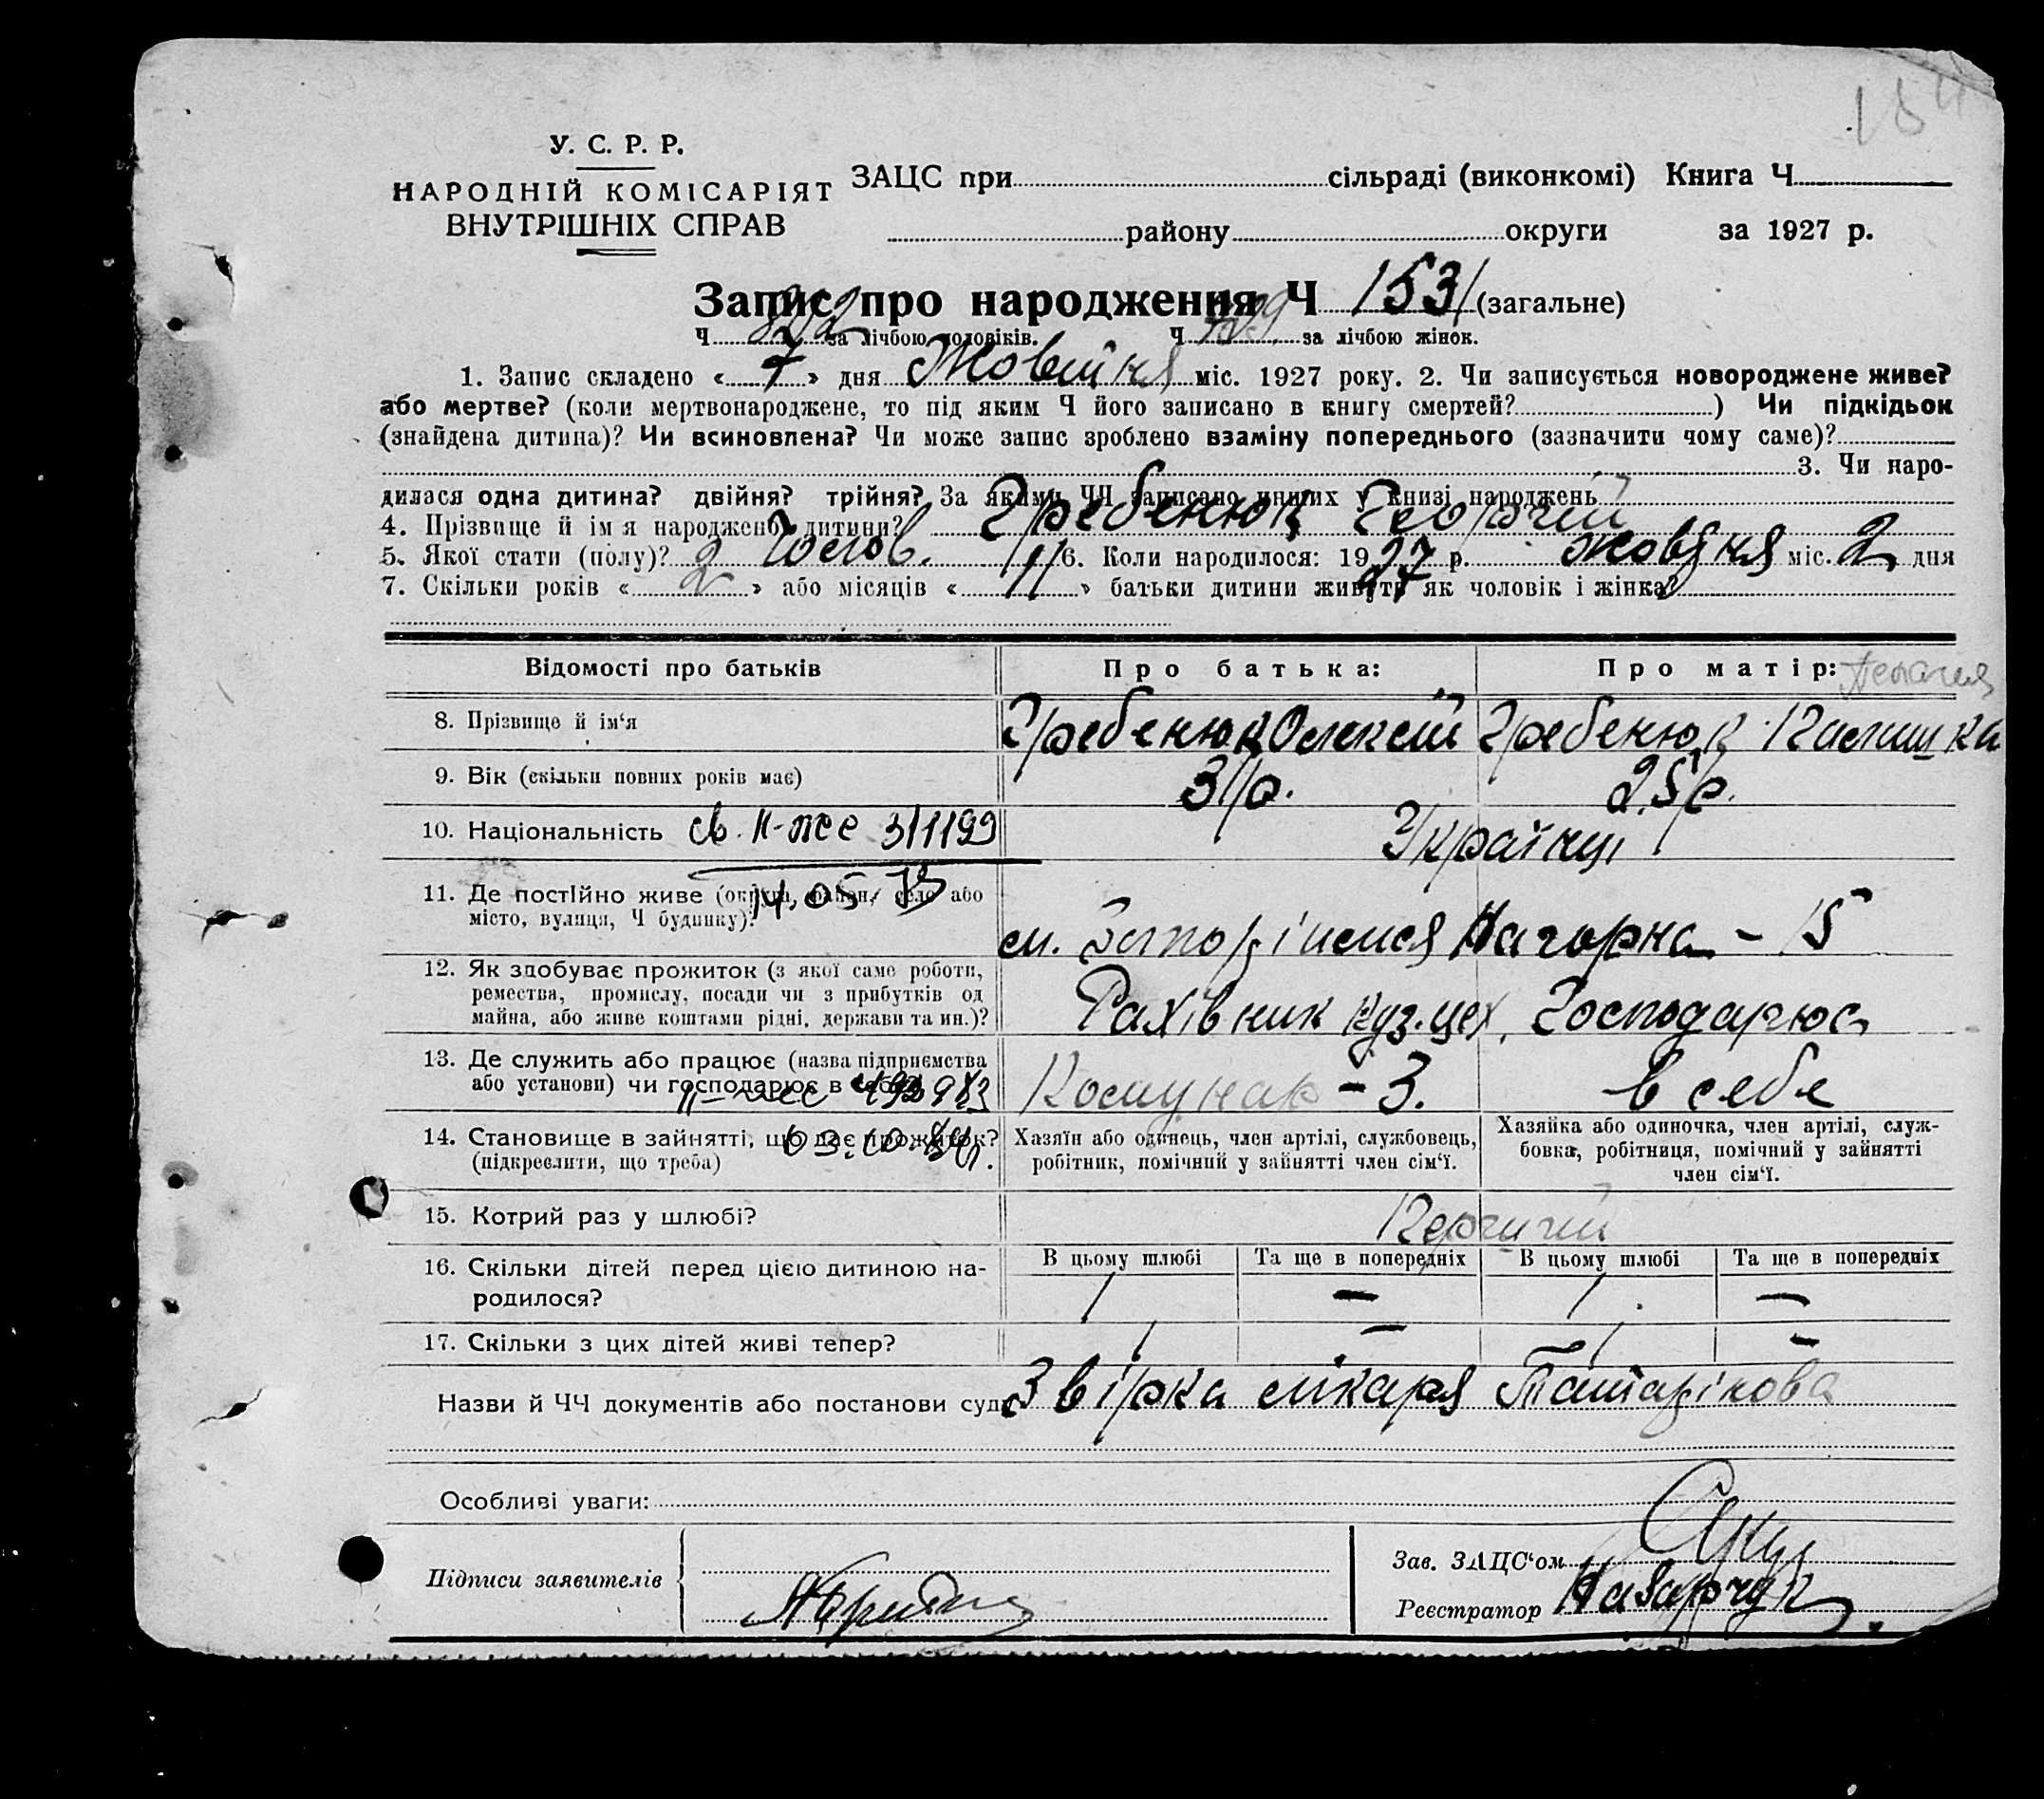 154
У. С. Р. Р.
НАРОДНІЙ КОМІСАРІЯТ
ВНУТРІШНІХ СПРАВ
ЗАЦС при сільраді (виконкомі) Книга Ч
району округи за 1927 р.
Запис про народження Ч 1531 (загальне)
Ч 802 за лічбою чоловіків. Ч 729 за лічбою жінок.
1. Запис складено « 7 » дня Жовтня міс. 1927 року. 2. Чи записується новороджене живе?
або мертве? (коли мертвонароджене, то під яким Ч його записано в книгу смертей? ) Чи підкідьок
(знайдена дитина)? Чи всиновлена? Чи може запис зроблено взаміну попереднього (зазначити чому саме)?
3. Чи наро-
дилася одна дитина? двійня? трійня? За якими ЧЧ записано инших у книзі народжень
4. Прізвище й ім я народженої дитини? Гребенюк Георгій
5. Якої стати (полу)? 2 Чолов. 6. Коли народилося: 1927 р. жовтня міс. 2 дня
7. Скільки років « 2 » або місяців « » батьки дитини живуть як чоловік і жінка?
Відомості про батьків
Про батька:
Про матір: Пелагия
8. Прізвище й ім'я
Гребенюк Олексій
Гребенюк
9. Вік (скільки повних років має)
31 р.
25 р.
10. Національність
св. II-же 311199
Українці
14.05.
11. Де постійно живе (округа, район, село або
місто, вулиця, Ч будинку)?
м. Запоріжжя Нагорна - 15
12. Як здобуває прожиток (з якої саме роботи,
ремества, промислу, посади чи з прибутків од
майна, або живе коштами рідні, держави та ин.)?
Рахівник куз.цех,
Господарює
13. Де служить або працює (назва підприємства
або установи) чи господарює в себе
II-же
Комунар - 3.
в себе
14. Становище в зайнятті, що дає прожиток?
(підкреслити, що треба)
03.10.84г.
Хазяїн або одинець, член артілі, службовець,
робітник, помічний у зайнятті член сім'ї.
Хазяйка або одиночка, член артілі, служ-
бовка, робітниця, помічний у зайнятті
член сім'ї.
15. Котрий раз у шлюбі?
Перший
16. Скільки дітей перед цією дитиною на-
родилося?
В цьому шлюбі
Та ще в попередніх
В цьому шлюбі
Та ще в попередніх
1 — 1 —
17. Скільки з цих дітей живі тепер?
1 — 1 —
Назви й ЧЧ документів або постанови суда
Звірка лікаря Татарінова
Особливі уваги:
Підписи заявителів
Зав. ЗАЦС'ом
Реєстратор Назарчук